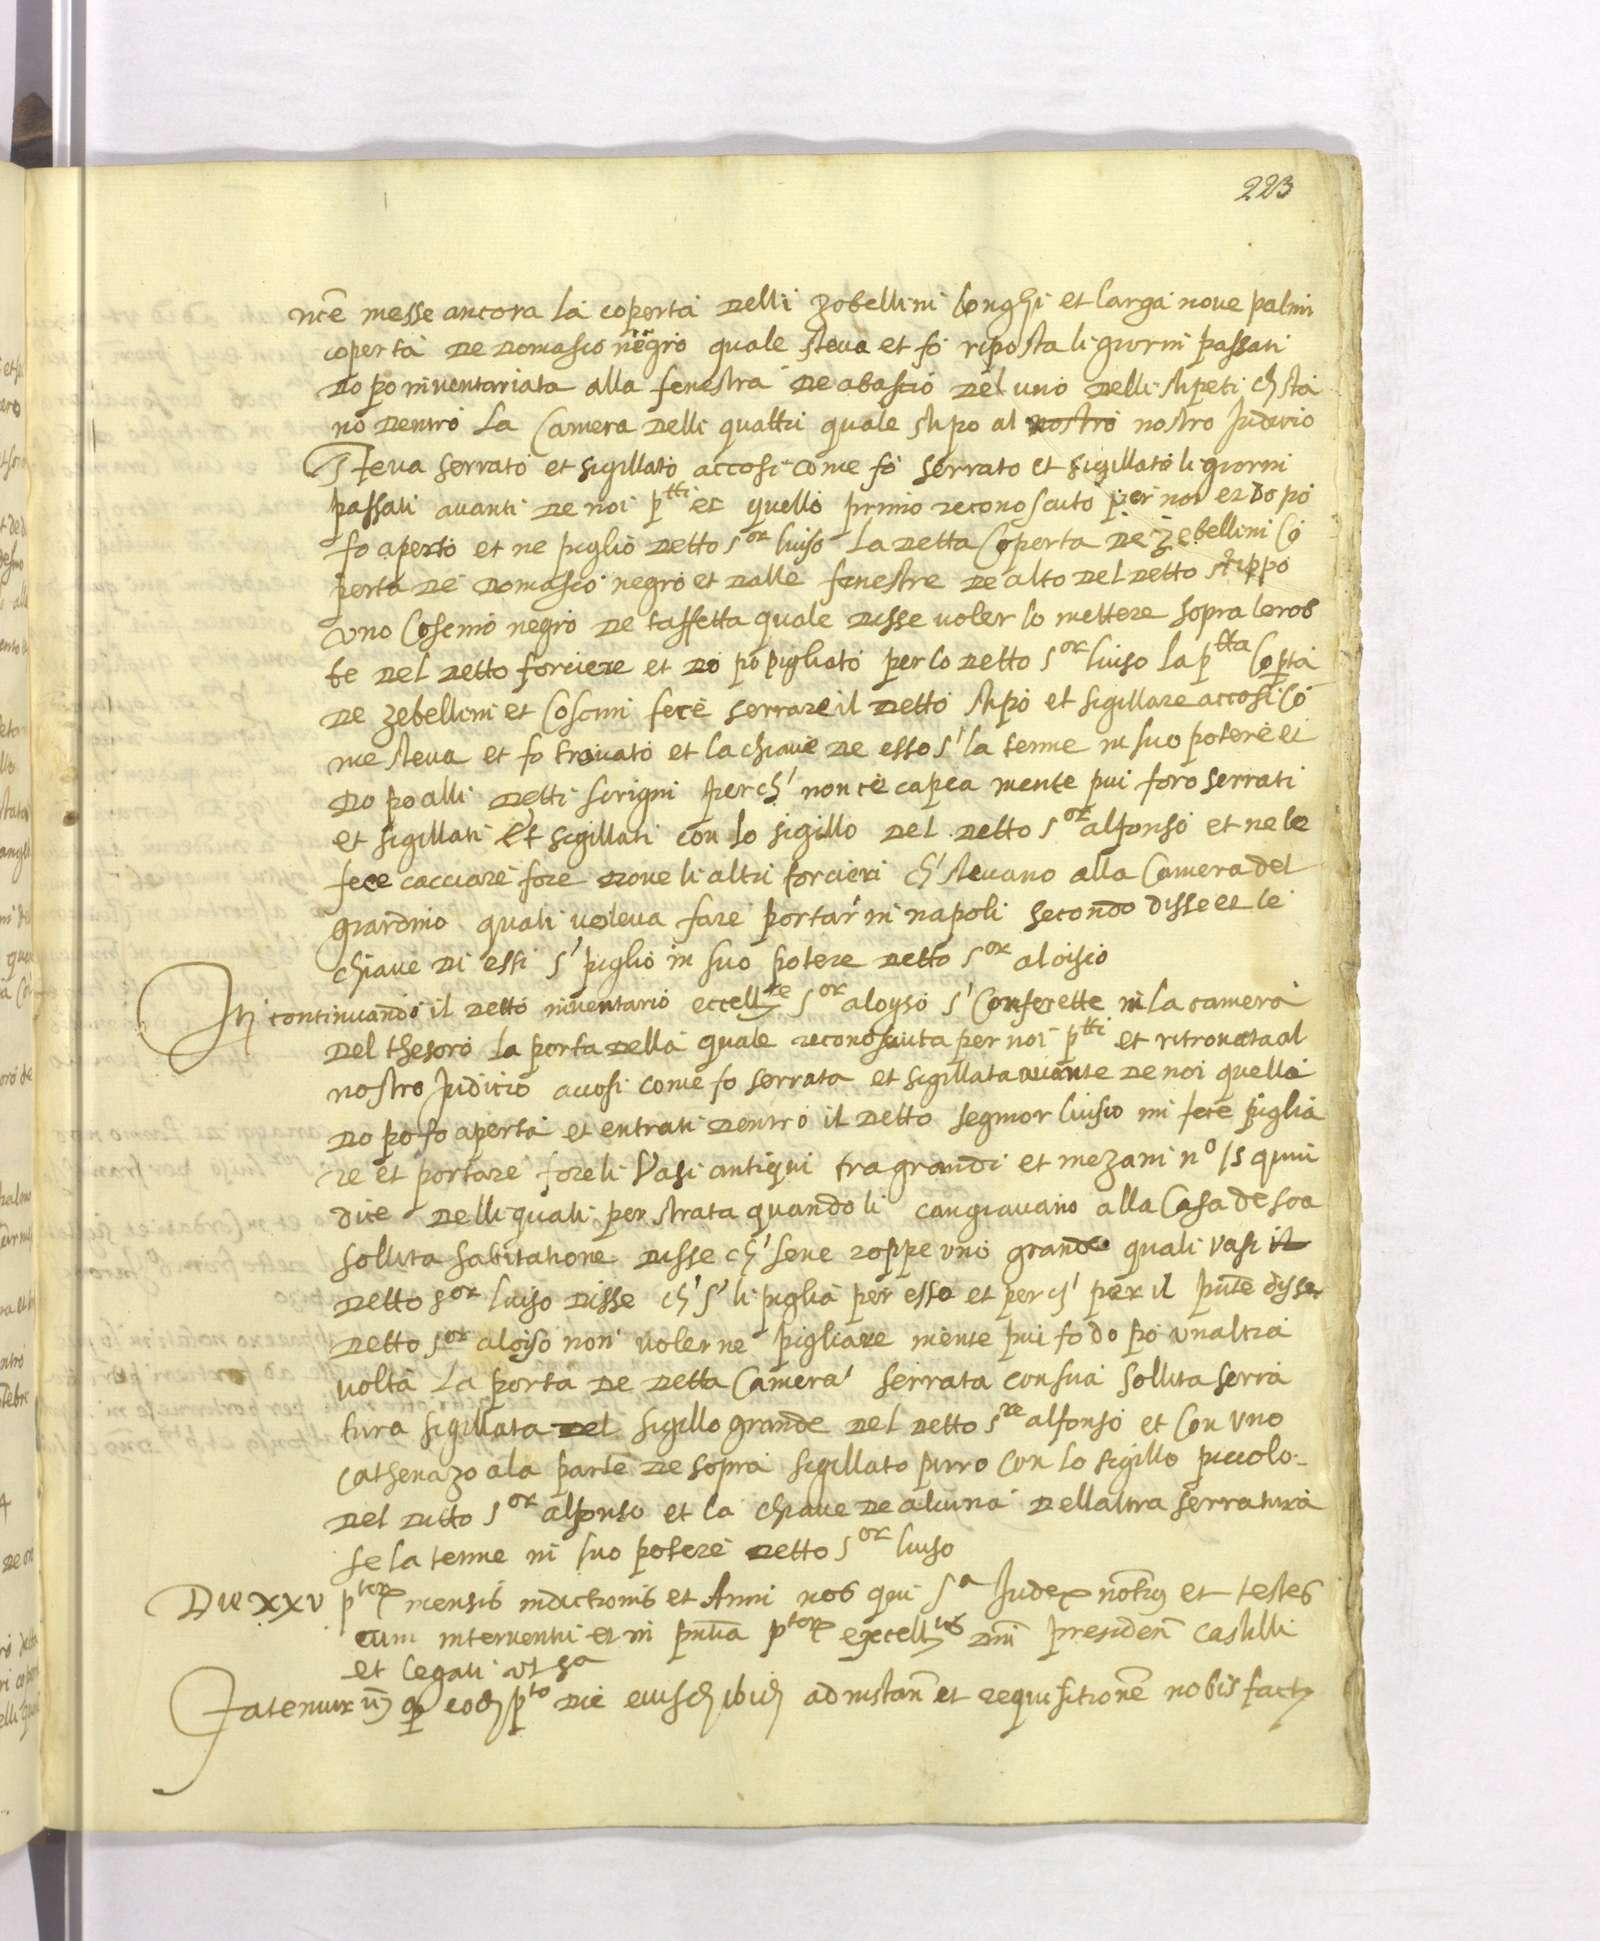 223
nce messe ancora la coperta delli zobellini longhi et larga nove palmi
coperta de domasco negro quale steva et fo riposta li giorni passati
do po inventariata alla fenestra de abascio del uno delli stipeti ch sta
no dentro la Camera delli quattri quale stipo al nostro nostro Juditio
steva serrato et sigillato accosi come fo serrato et sigillato li giorni
passati avanti de noi p^tti et quello primo reconosciuto per noi et do po
fo aperto et ne piglio detto s^or luiso la detta Coperta de zebellini Co
perta de domasco negro et dalle fenestre de alto del detto stippo
uno Coscino negro de taffetta quale disse voler lo mettere sopra le rob
be del detto forciere et do po pigliato per lo detto s^or luiso la p^tta Coperta
de zebellini et Coscini fece serrare il detto stipo et sigillare accosi Co
me steva et fo trovato et la chiave de esso s' la tenne in suo potere et
do po alli detti scrigni perch' non ce capea niente piu foro serrati
et sigillati et sigillati con lo sigillo del detto s^or alfonso et ne le
fece cacciare fore dove li altri forcieri ch' stevano alla Camera del
giardino quali voleva fare portar' in napoli secondo disse et le
chiave di essi s' piglio in suo potere detto s^or aloisio
In continuando il detto inventario eccell^te s^or aloyso s' Conferette in la camera
del thesoro la porta della quale reconosciuta per noi p^tti et ritrovata al
nostro Juditio accosi come fo serrata et sigillata avante de noi quella
do po fo aperta et entrati dentro il detto segnior luiso mi fece piglia
re et portare fore li Vasi antiqui tra grandi et mezani n^o 15 quin
dice delli quali per strata quando li cangiavano alla Casa de soa
sollita habitatione disse ch' sene roppe uno grande quali vasi il
detto s^or luiso disse ch' s' li piglia per esso et perch' per il pnte disse
detto s^or aloiso non voler ne pigliare niente piu fo do po unaltra
volta la porta de detta Camera' serrata con sua sollita serra
tura sigillata del sigillo grande del detto s^re alfonso et Con uno
cathenazo a la parte de sopra sigillato purro Con lo sigillo piccolo
del ditto s^or alfonso et la chiave de alcuna dellaltra serratura
se la tenne in suo potere detto s^or luiso
Die xxv p^ter mensis indictionis et Anni nos qui s^a Judex notrs et testes
cum interventu et in pntia p^tor excell^tis dni presiden Castelli
et legati ut s^a
Fatemur q eod p^to die eiusd ibid ad instan et requisitione nobis fact